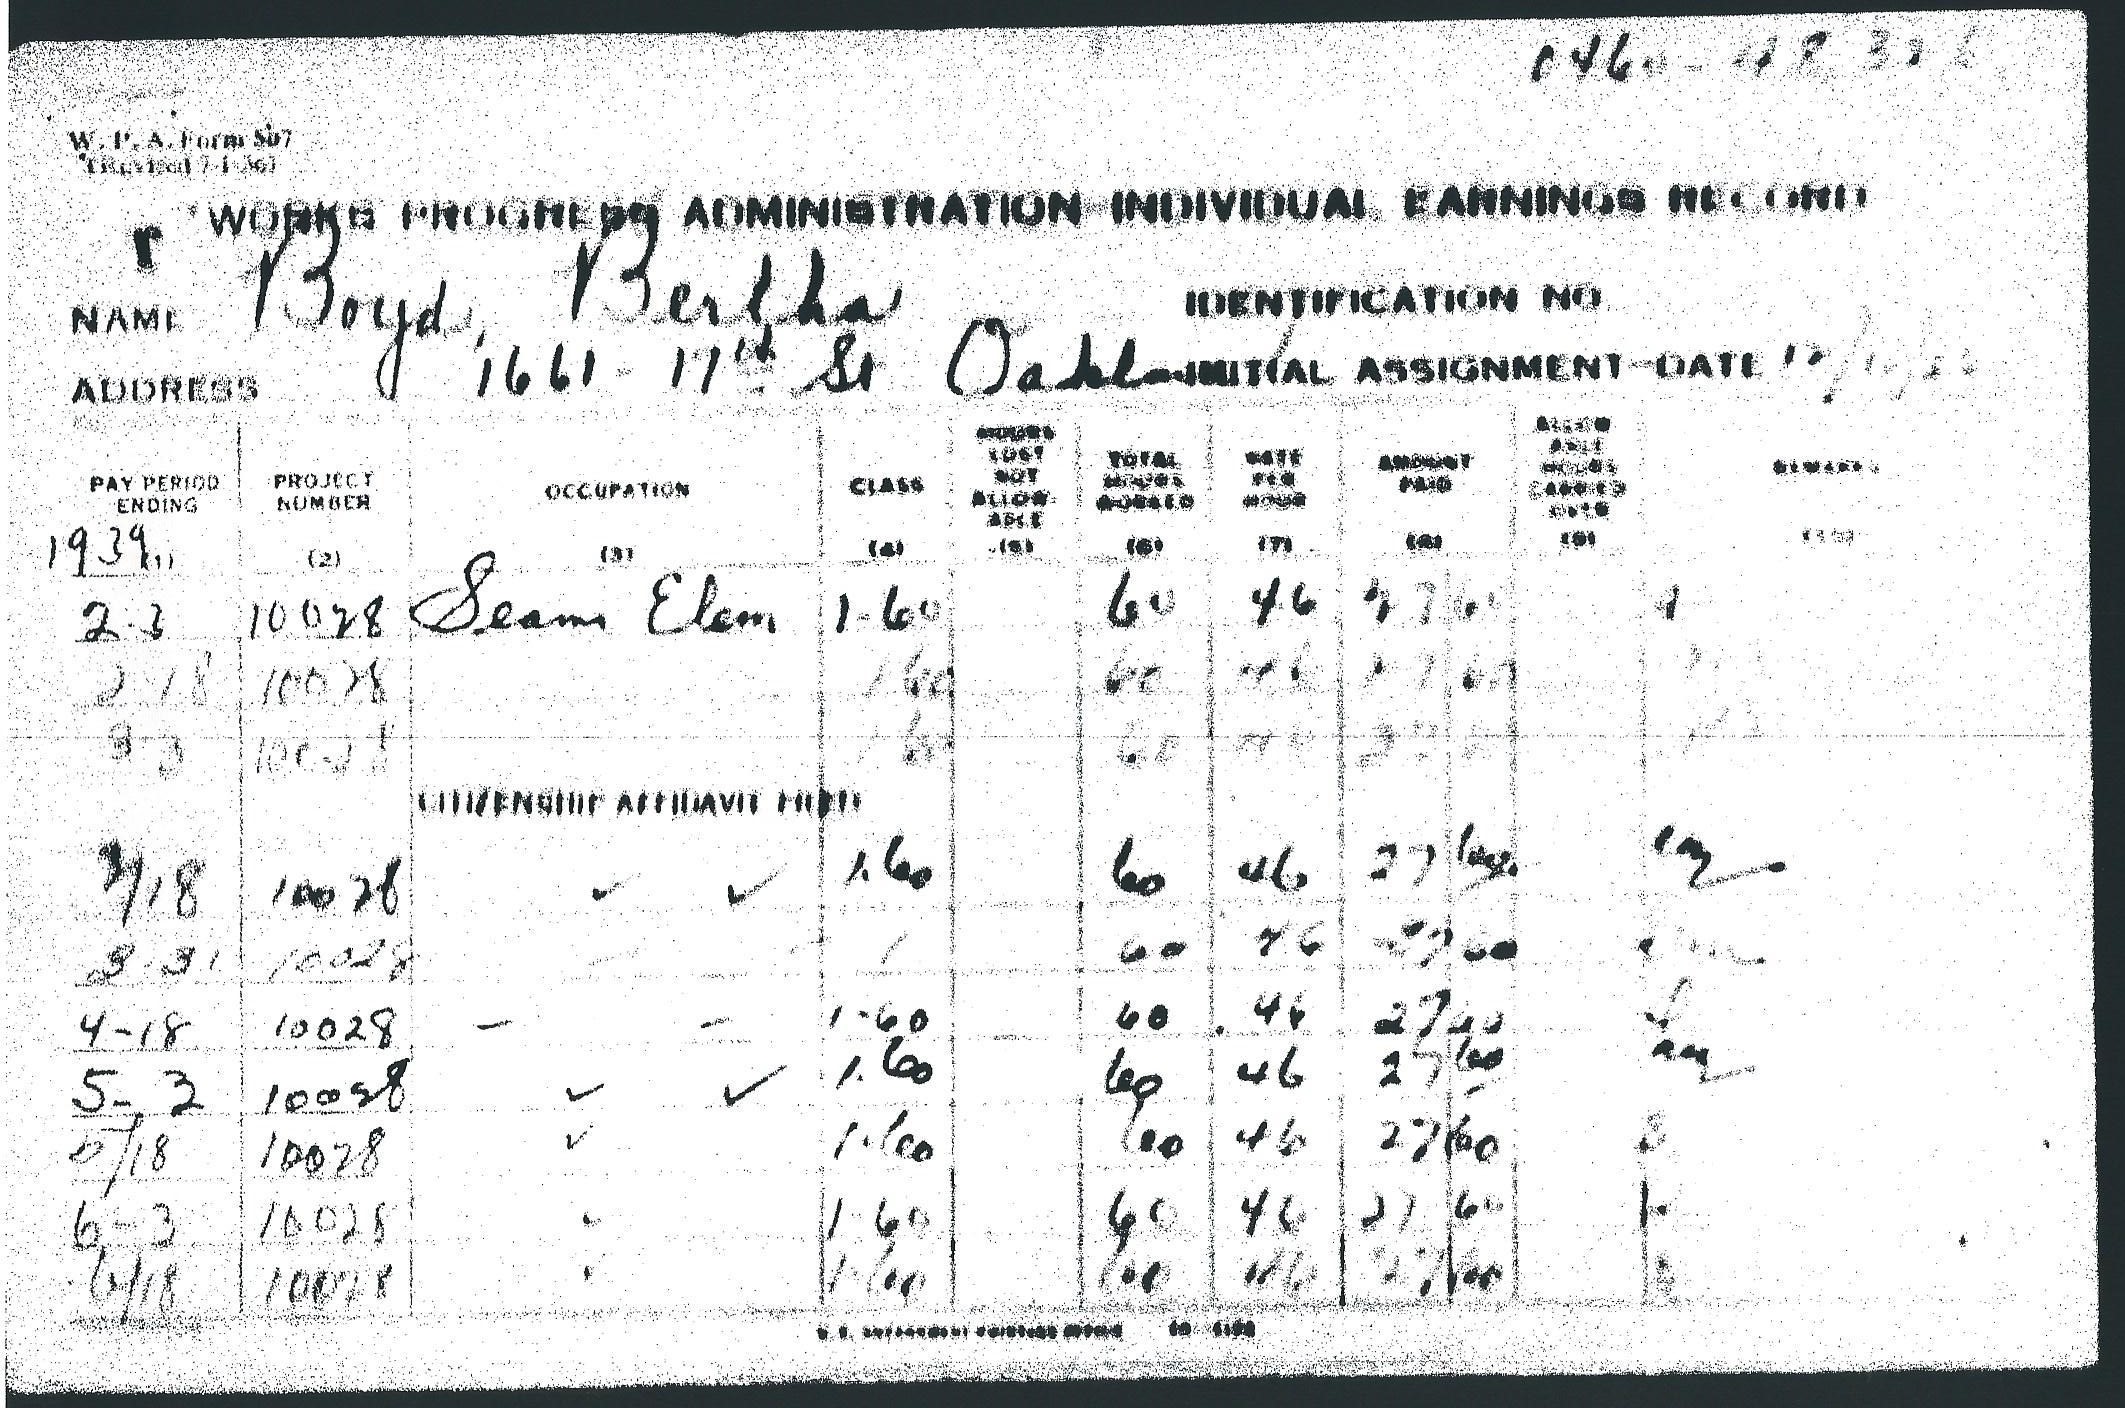 W. P. A. Form 507
(Revised 7-1-36)
WORKS PROGRESS ADMINISTRATION INDIVIDUAL EARNINGS RECORD
NAME Boyd, Bertha IDENTIFICATION NO
ADDRESS 1661 - 17th St Oakland INITIAL ASSIGNMENT-DATE
PAY PERIOD ENDING PROJECT NUMBER OCCUPATION CLASS HOURS LOST NOT ALLOWABLE TOTAL HOURS WORKED RATE PER HOUR AMOUNT PAID ALLOWABLE HOURS CARRIED OVER REMARKS
1939 (1) (2) (3) (4) (5) (6) (7) (8) (9) (10)
2-3 10028 Seams Elem 1-60 60 46 27 60
2-18 10028 1 60 60 46 27 60
3-3 10028 1 60 60 46 27 60
CITIZENSHIP AFFIDAVIT FILED
3/18 10028 ✓ ✓ 1.60 60 46 27 60
3-31 10028 1 60 46 27 60
4-18 10028 - - 1-60 60 .46 27 60
5-3 10028 ✓ ✓ 1.60 60 46 27 60
5/18 10028 ✓ 1-60 60 46 27 60
6-3 10028 ✓ 1-60 60 46 27 60
6/18 10028 1-60 60 46 27 60
U. S. GOVERNMENT PRINTING OFFICE